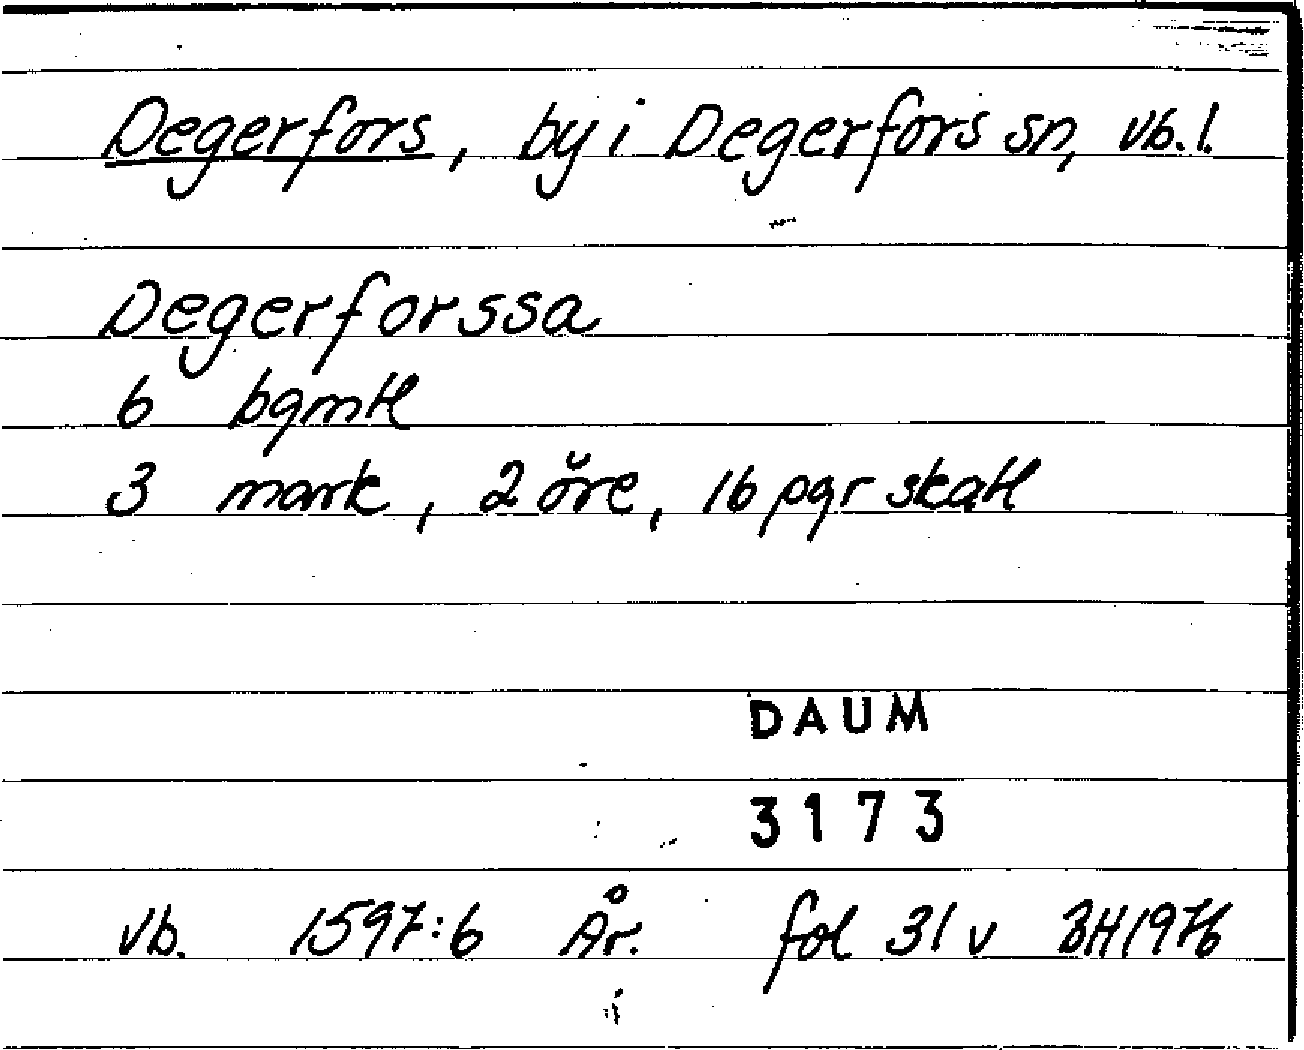 Degerfors, by i Degerfors sn, vb. l.
Degerforssa
6 bgmtl
3 mark, 2 öre, 16 pgr skatt
DAUM
3173
Vb. 1597:6 År. fol 31 v BH1976